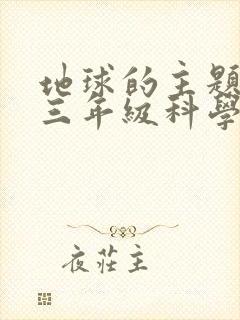 地球的主題
三年級科學
夜莊主